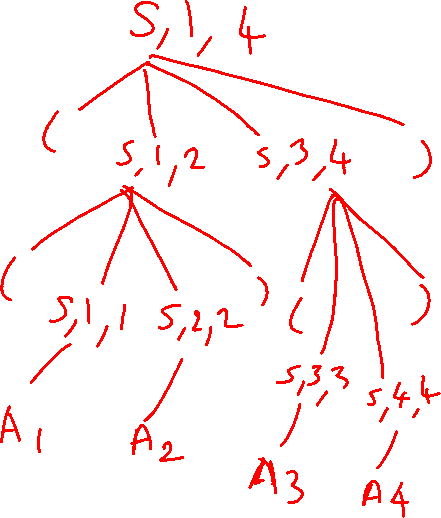 S,1,4
( S,1,2 S,3,4 )
( S,1,1 S,2,2 ) ( S,3,3 S,4,4 )
A1 A2 A3 A4